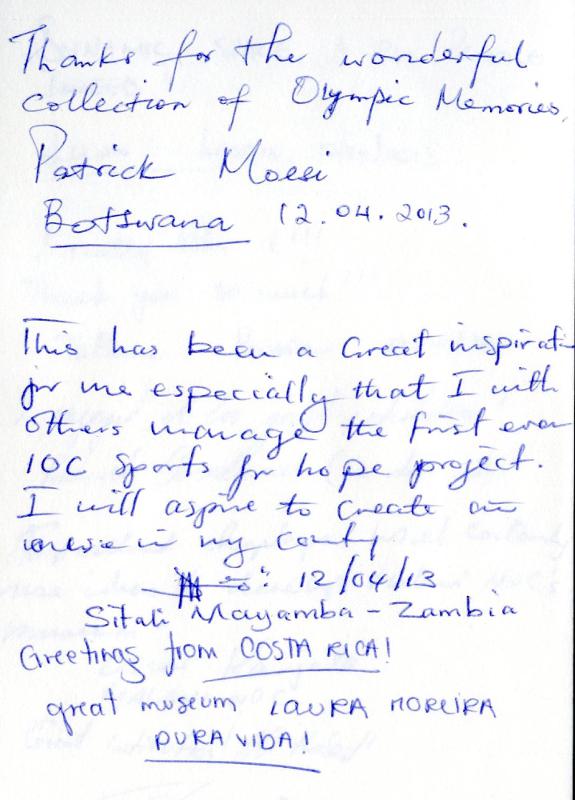 Thanks for the wonderful
collection of Olympic Memories.
Patrick Moesi
Botswana 12.04.2013.
This has been a Great inspirati
for me especially that I with
others manage the first ever
IOC Sports for hope project.
I will aspire to create an
in my
12/04/13
Sitali Mayamba - Zambia
Greetings from COSTA RICA!
great museum LAURA MOREIRA
PURA VIDA!